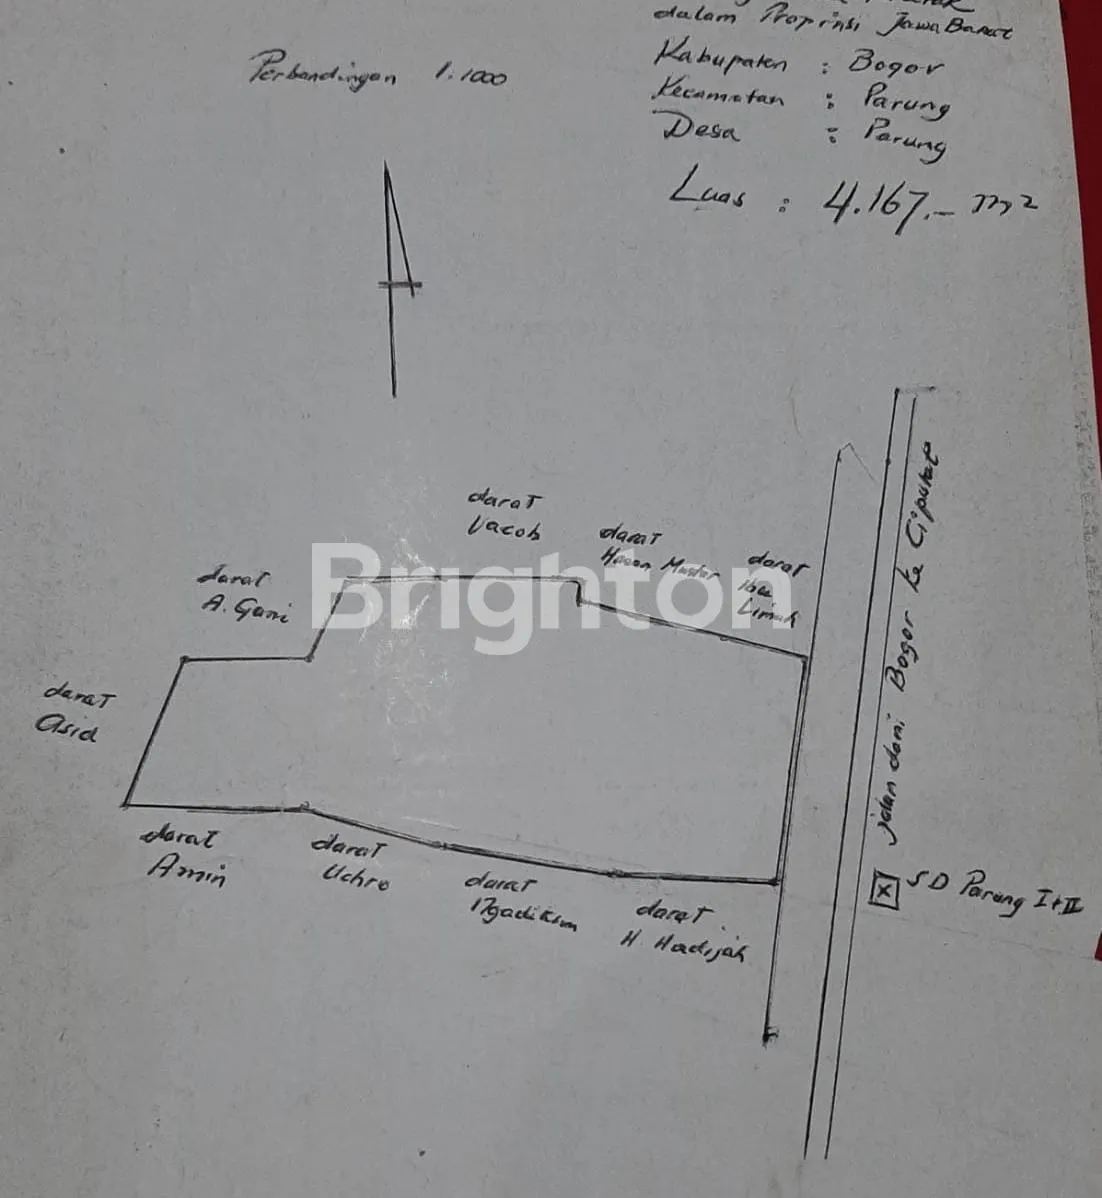 dalam Propinsi Jawa Barat
Perbandingan 1:1000
Kabupaten : Bogor
Kecamatan : Parung
Desa : Parung
Luas : 4.167.- m2
darat
Yacob
darat
Hasan
darat
Ibu
Limah
darat
A. Gani
Brighton
darat
Asid
darat
Amin
darat
Uchro
darat
Ngadikun
darat
H. Hadijah
jalan dari Bogor ke Ciputat
X
SD Parung I+II